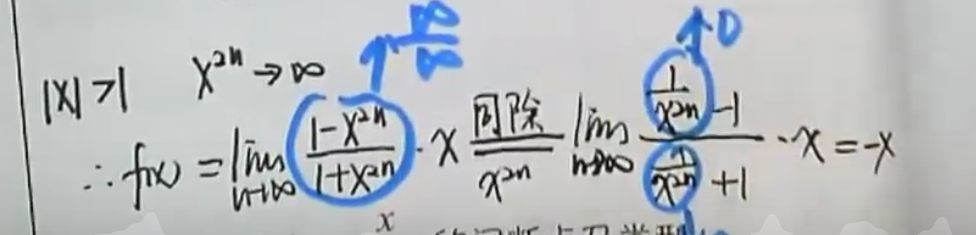 ∞/∞ 0
|x|>1 x^{2n}→∞
∴ f(x) = lim_{n→∞} (1-x^{2n})/(1+x^{2n}) · x 同除 x^{2n} lim_{n→∞} (1/x^{2n} -1)/(1/x^{2n} +1) · x = -x
x